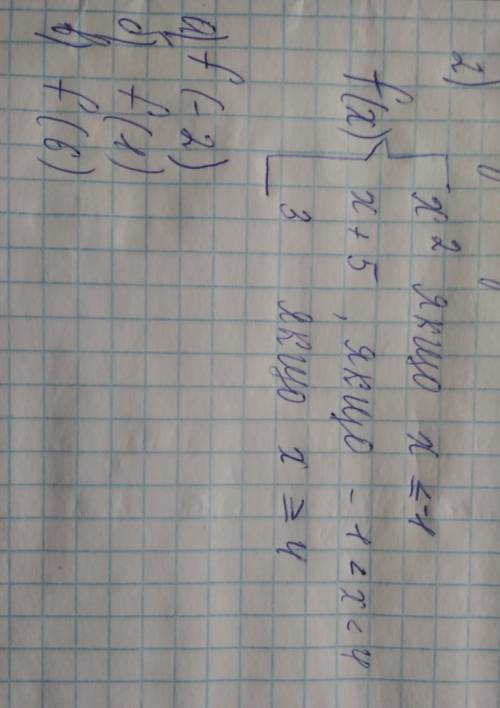 2)
x² якщо x ≤ -1
f(x) x + 5, якщо -1 < x < 4
3 якщо x ≥ 4
а) f(-2)
б) f(1)
в) f(6)